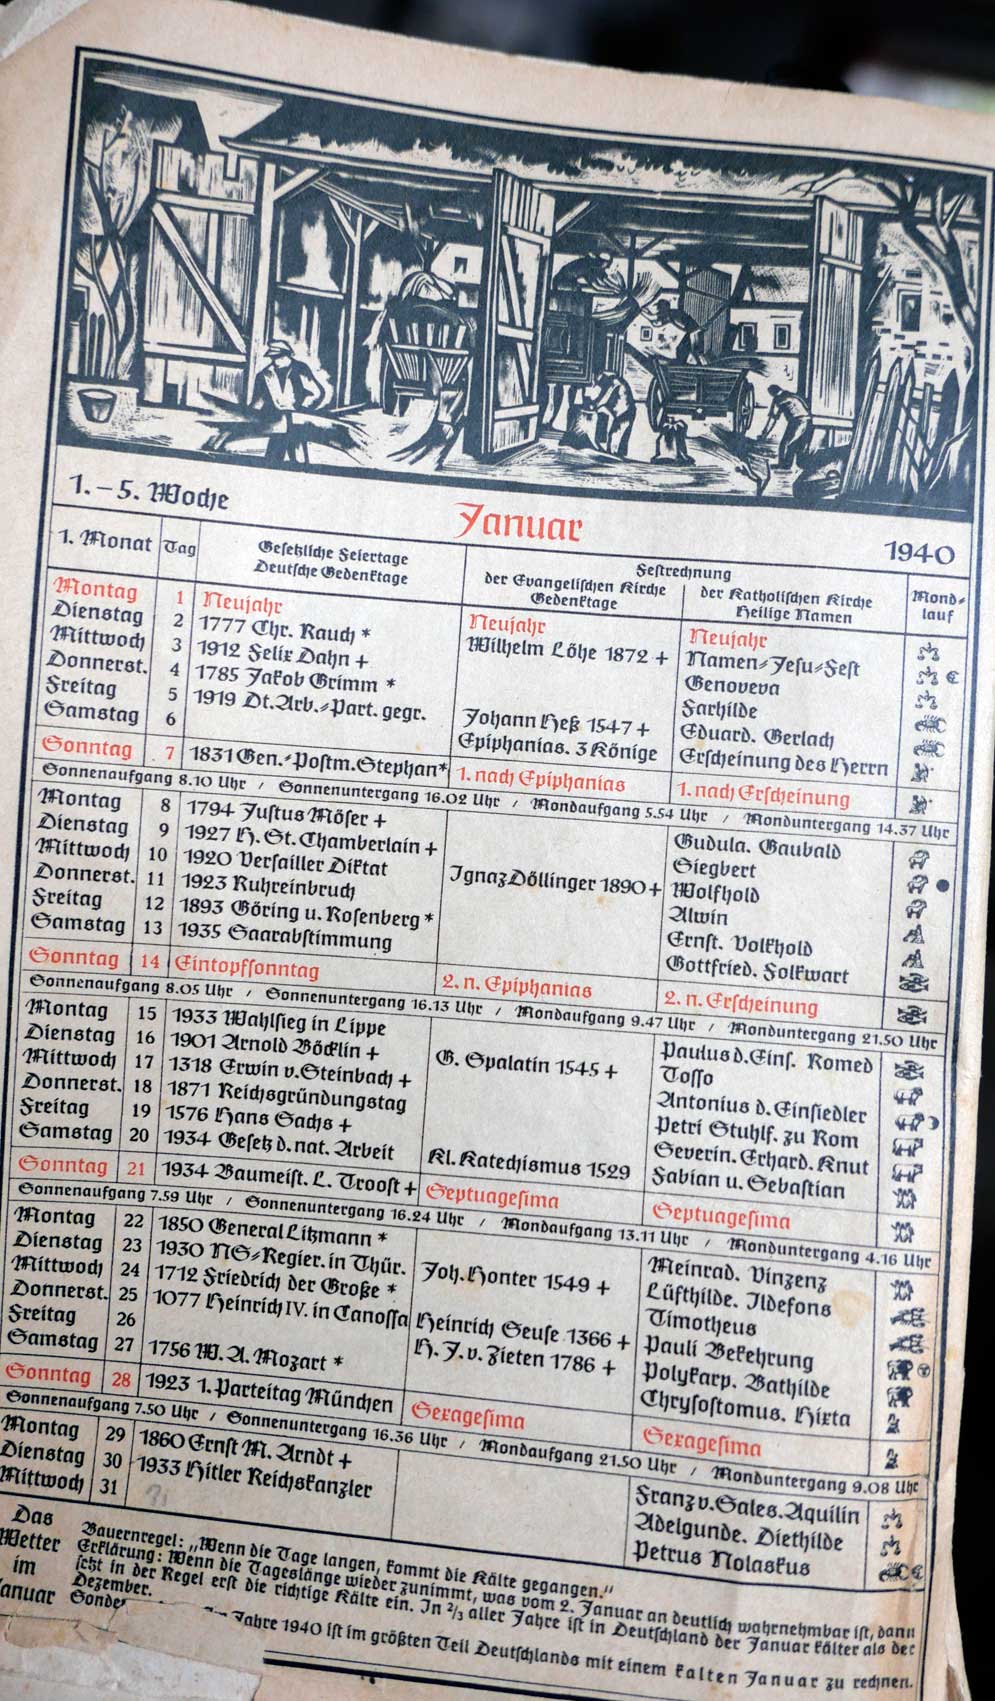 1. – 5. Woche
Januar
1940
1. Monat Tag Gesetzliche Feiertage Festrechnung Mond-
Deutsche Gedenktage der Evangelischen Kirche der Katholischen Kirche lauf
Gedenktage Heilige Namen
Montag 1 Neujahr Neujahr Neujahr
Dienstag 2 1777 Chr. Rauch * Wilhelm Löhe 1872 + Namen-Jesu-Fest
Mittwoch 3 1912 Felix Dahn + Genoveva
Donnerst. 4 1785 Jakob Grimm * Farhilde
Freitag 5 1919 Dt. Arb.-Part. gegr. Johann Heß 1547 + Eduard. Gerlach
Samstag 6 Epiphanias. 3 Könige Erscheinung des Herrn
Sonntag 7 1831 Gen.-Postm. Stephan* 1. nach Epiphanias 1. nach Erscheinung
Sonnenaufgang 8.10 Uhr / Sonnenuntergang 16.02 Uhr / Mondaufgang 5.54 Uhr / Monduntergang 14.37 Uhr
Montag 8 1794 Justus Möser + Gudula. Gaubald
Dienstag 9 1927 H. St. Chamberlain + Siegbert
Mittwoch 10 1920 Versailler Diktat Ignaz Döllinger 1890 + Wolfhold
Donnerst. 11 1923 Ruhreinbruch Alwin
Freitag 12 1893 Göring u. Rosenberg * Ernst. Volkhold
Samstag 13 1935 Saarabstimmung Gottfried. Folkwart
Sonntag 14 Eintopfsonntag 2. n. Epiphanias 2. n. Erscheinung
Sonnenaufgang 8.05 Uhr / Sonnenuntergang 16.13 Uhr / Mondaufgang 9.47 Uhr / Monduntergang 21.50 Uhr
Montag 15 1933 Wahlsieg in Lippe Paulus d. Eins. Romed
Dienstag 16 1901 Arnold Böcklin + G. Spalatin 1545 + Tosso
Mittwoch 17 1318 Erwin v. Steinbach + Antonius d. Einsiedler
Donnerst. 18 1871 Reichsgründungstag Petri Stuhlf. zu Rom
Freitag 19 1576 Hans Sachs + Severin. Erhard. Knut
Samstag 20 1934 Gesetz d. nat. Arbeit Kl. Katechismus 1529 Fabian u. Sebastian
Sonntag 21 1934 Baumeist. L. Troost + Septuagesima Septuagesima
Sonnenaufgang 7.59 Uhr / Sonnenuntergang 16.24 Uhr / Mondaufgang 13.11 Uhr / Monduntergang 4.16 Uhr
Montag 22 1850 General Litzmann * Meinrad. Vinzenz
Dienstag 23 1930 NS-Regier. in Thür. Joh. Honter 1549 + Lüfthilde. Ildefons
Mittwoch 24 1712 Friedrich der Große * Timotheus
Donnerst. 25 1077 Heinrich IV. in Canossa Heinrich Seuse 1366 + Pauli Bekehrung
Freitag 26 H. J. v. Zieten 1786 + Polykarp. Bathilde
Samstag 27 1756 W. A. Mozart * Chrysostomus. Hixta
Sonntag 28 1923 1. Parteitag München Sexagesima Sexagesima
Sonnenaufgang 7.50 Uhr / Sonnenuntergang 16.36 Uhr / Mondaufgang 21.50 Uhr / Monduntergang 9.08 Uhr
Montag 29 1860 Ernst M. Arndt + Franz v. Sales. Aquilin
Dienstag 30 1933 Hitler Reichskanzler Adelgunde. Diethilde
Mittwoch 31 Petrus Nolaskus
Das
Wetter
im
Januar
Bauernregel: „Wenn die Tage langen, kommt die Kälte gegangen.“
Erklärung: Wenn die Tageslänge wieder zunimmt, was vom 2. Januar an deutlich wahrnehmbar ist, dann
setzt in der Regel erst die richtige Kälte ein. In 2/3 aller Jahre ist in Deutschland der Januar kälter als der
Dezember.
Jahre 1940 ist im größten Teil Deutschlands mit einem kalten Januar zu rechnen.